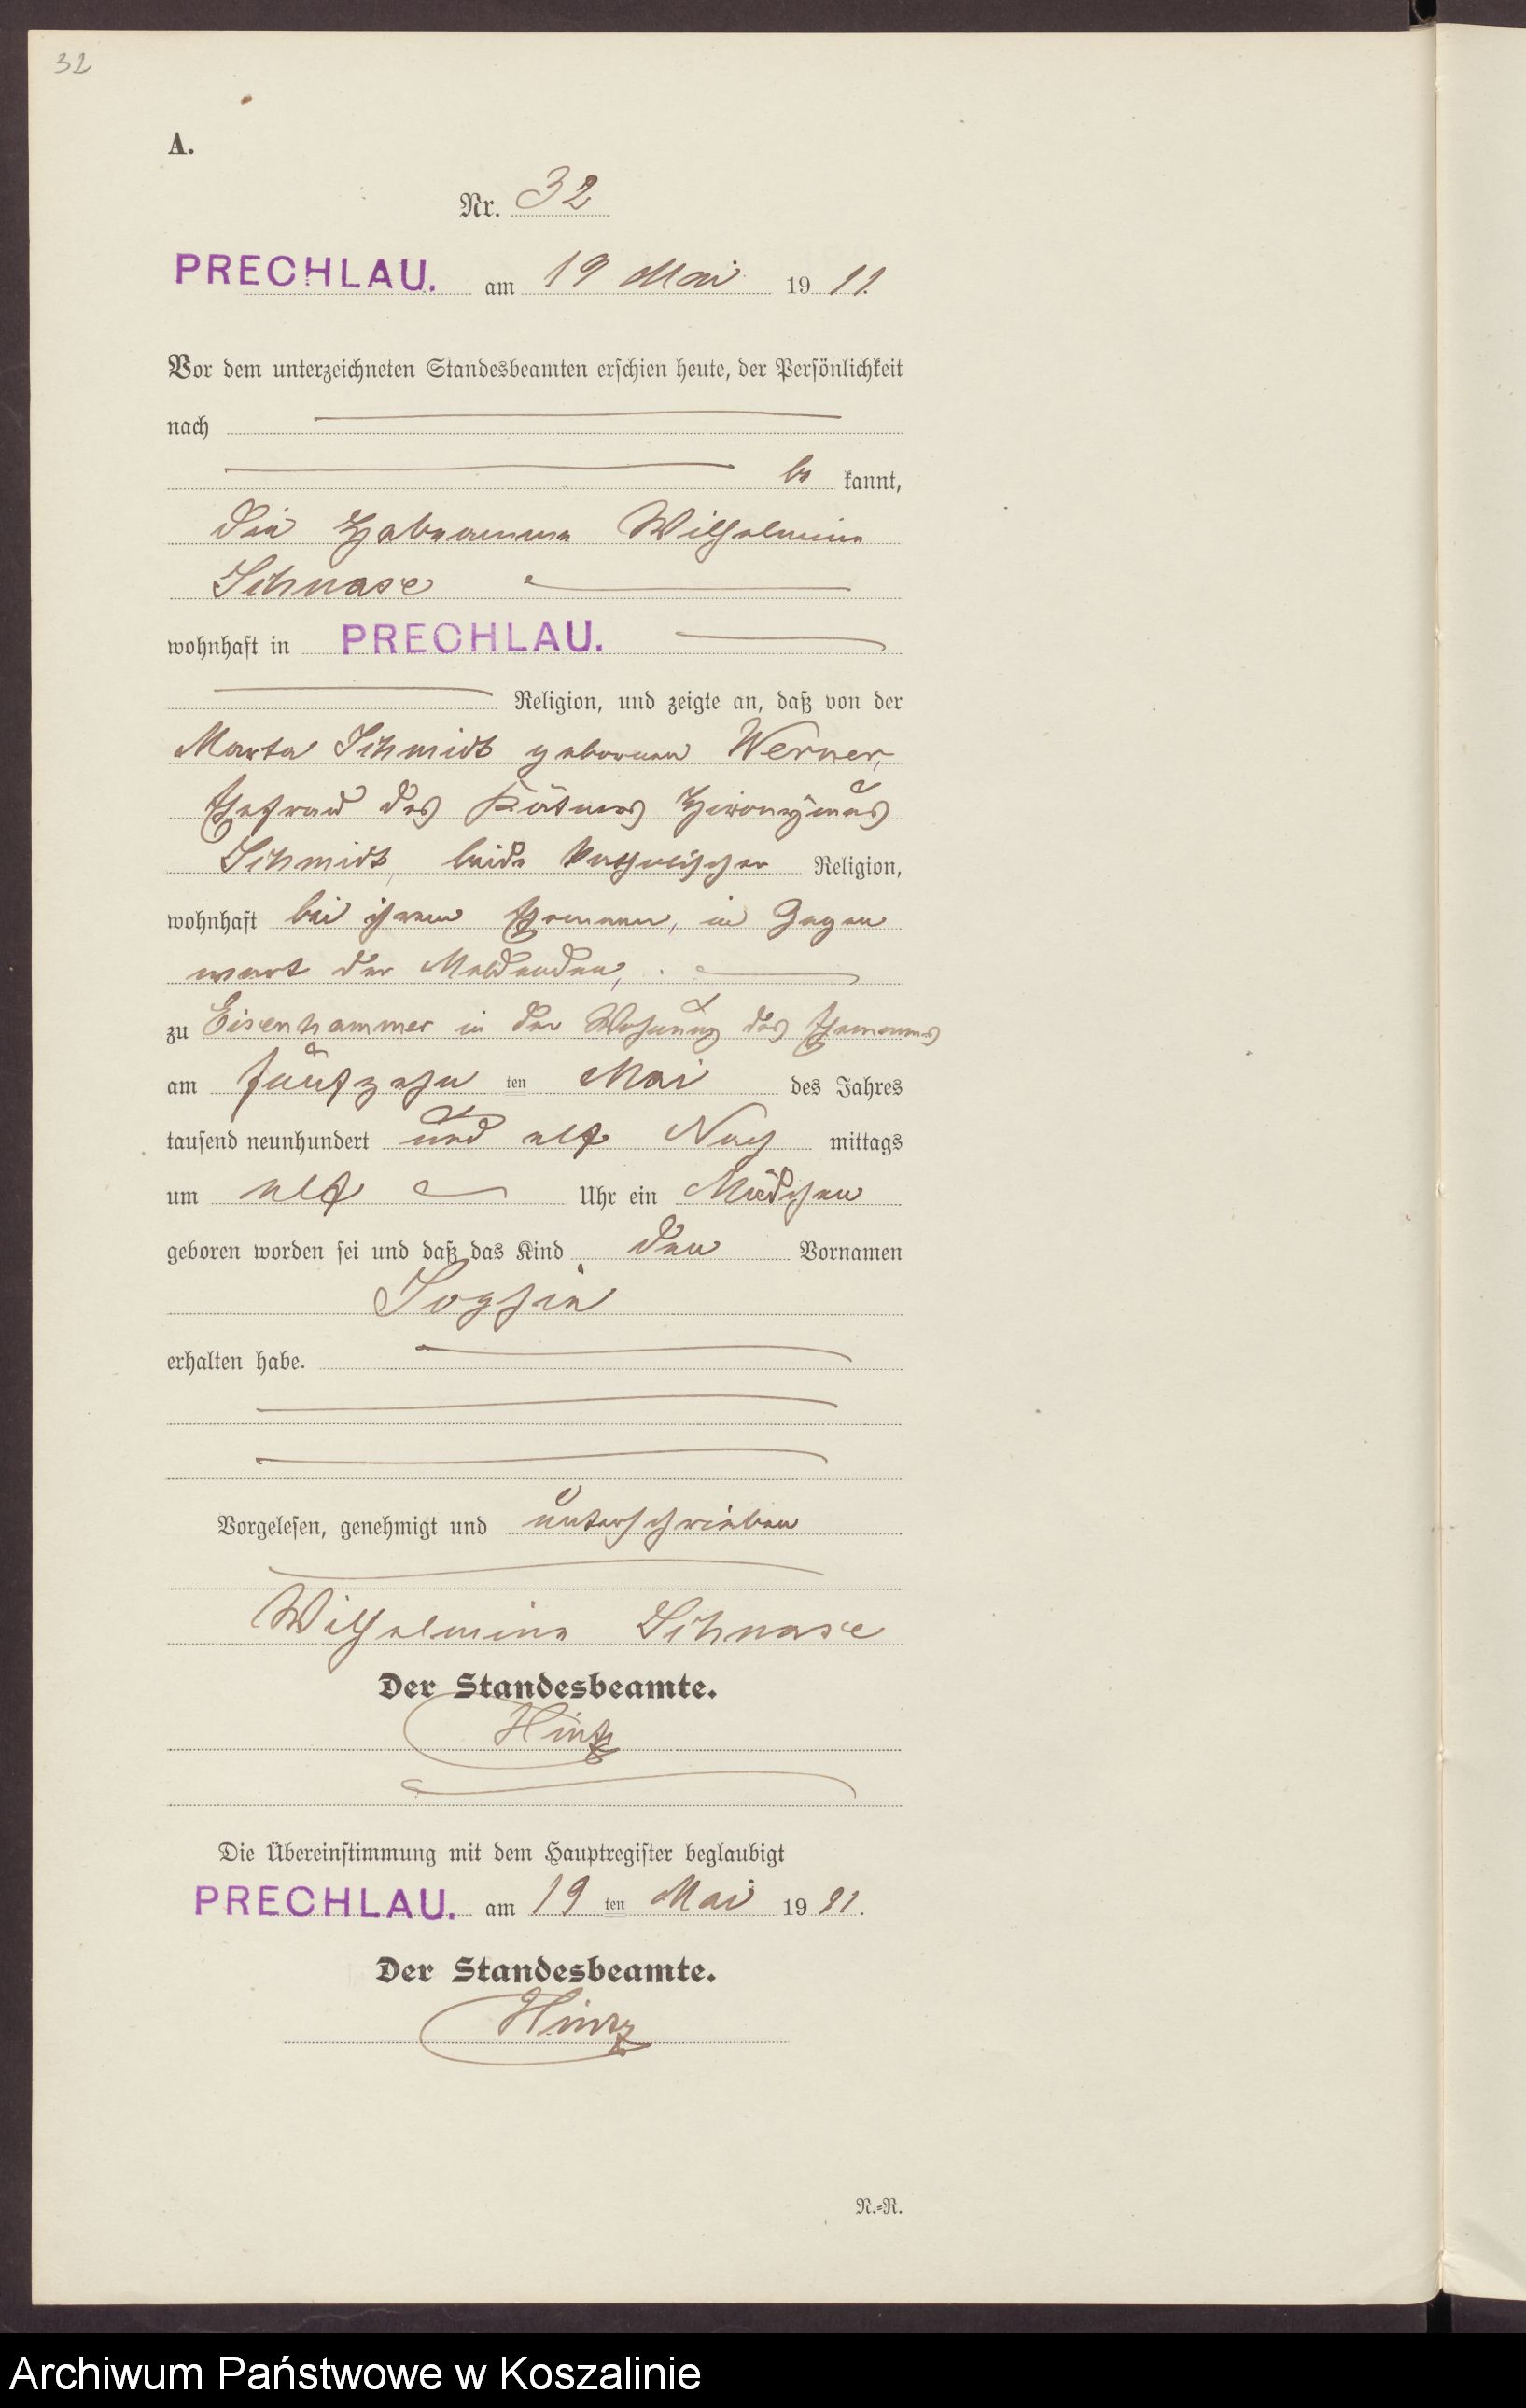 32
A.
Nr. 32
PRECHLAU. am 19 Mai 1911.
Vor dem unterzeichneten Standesbeamten erschien heute, der Persönlichkeit
nach
be kannt,
die Hebeamme Wilhelmine
Schnase
wohnhaft in PRECHLAU.
Religion, und zeigte an, daß von der
Marta Schmidt geborenen Werner,
Ehefrau des Kätners Hieronymus
Schmidt, beide katholischer Religion,
wohnhaft bei ihrem Ehemann, in Gegen
wart der Meldenden,
zu Eisenhammer in der Wohnung des Ehemanns
am fünfzehn ten Mai des Jahres
tausend neunhundert und elf Nach mittags
um elf Uhr ein Mädchen
geboren worden sei und daß das Kind den Vornamen
Sophie
erhalten habe.
Vorgelesen, genehmigt und unterschrieben
Wilhelmine Schnase
Der Standesbeamte.
Hintz
Die Übereinstimmung mit dem Hauptregister beglaubigt
PRECHLAU. am 19 ten Mai 1911.
Der Standesbeamte.
Hintz
N.=R.
Archiwum Państwowe w Koszalinie